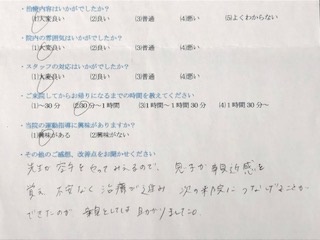 ・治療内容はいかがでしたか？
(1)大変良い (2)良い (3)普通 (4)悪い (5)よくわからない
・院内の雰囲気はいかがでしたか？
(1)大変良い (2)良い (3)普通 (4)悪い
・スタッフの対応はいかがでしたか？
(1)大変良い (2)良い (3)普通 (4)悪い
・ご来院してからお帰りになるまでの時間を教えてください
(1)～30分 (2)30分～1時間 (3)1時間～1時間30分 (4)1時間30分～
・当院の運動指導に興味がありますか？
(1)興味がある (2)興味がない
・その他のご感想、改善点をお聞かせください
先生が 空手を やって みえるので、 息子が 親近感を
覚え 不安なく 治療が 進み 次の 来院に つなげることが
できたのが 親としては 助かりました。